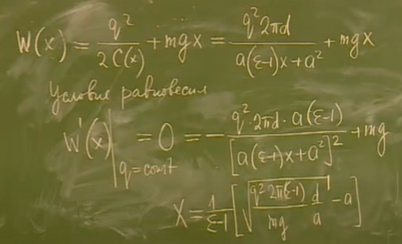 W(x) = q²/2C(x) + mgx = q²2πd/a(ε-1)x+a² + mgx
Условие равновесия
W'(x)|q=const = 0 = - q²·2πd·a(ε-1)/[a(ε-1)x+a²]² + mg
X = 1/ε-1 [√(q²2π(ε-1)/mg d/a) - a]